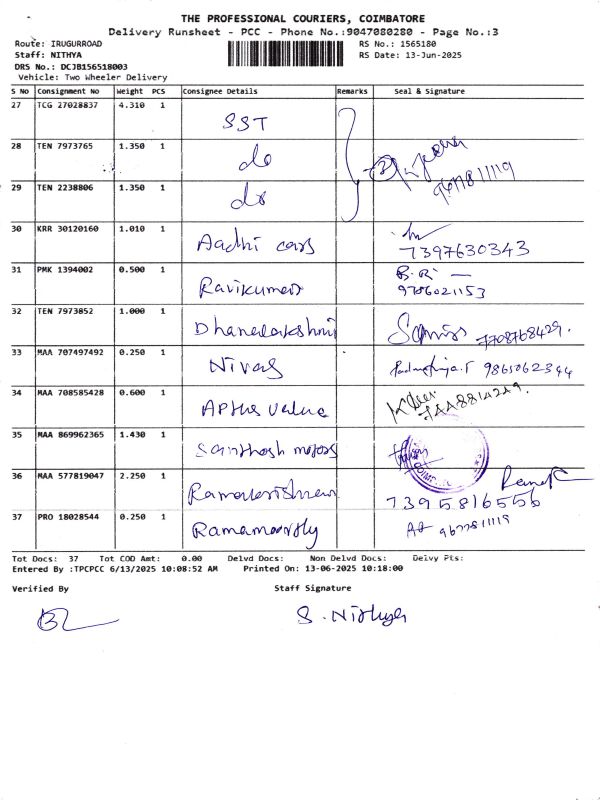 THE PROFESSIONAL COURIERS, COIMBATORE
Delivery Runsheet - PCC - Phone No.:9047080280 - Page No.:3
Route: IRUGURROAD RS No.: 1565180
Staff: NITHYA RS Date: 13-Jun-2025
DRS No.: DCJB156518003
Vehicle: Two Wheeler Delivery
S No Consignment No Weight PCS Consignee Details Remarks Seal & Signature
27 TCG 27028837 4.310 1 SST
28 TEN 7973765 1.350 1 do
29 TEN 2238806 1.350 1 do
30 KRR 30120160 1.010 1 Aadhi cars 7397630343
31 PMK 1394002 0.500 1 Ravikumar B.R. 9786021153
32 TEN 7973852 1.000 1 Dhanalakshmi 7708768429.
33 MAA 707497492 0.250 1 Nivas 9865062344
34 MAA 708585428 0.600 1 Aptus value
35 MAA 869962365 1.430 1 Santhosh motors
36 MAA 577819047 2.250 1 Ramakrishnan 7395816556
37 PRO 18028544 0.250 1 Ramamoorthy 9677811119
Tot Docs: 37 Tot COD Amt: 0.00 Delvd Docs: Non Delvd Docs: Delvy Pts:
Entered By :TPCPCC 6/13/2025 10:08:52 AM Printed On: 13-06-2025 10:18:00
Verified By Staff Signature
S. Nithya